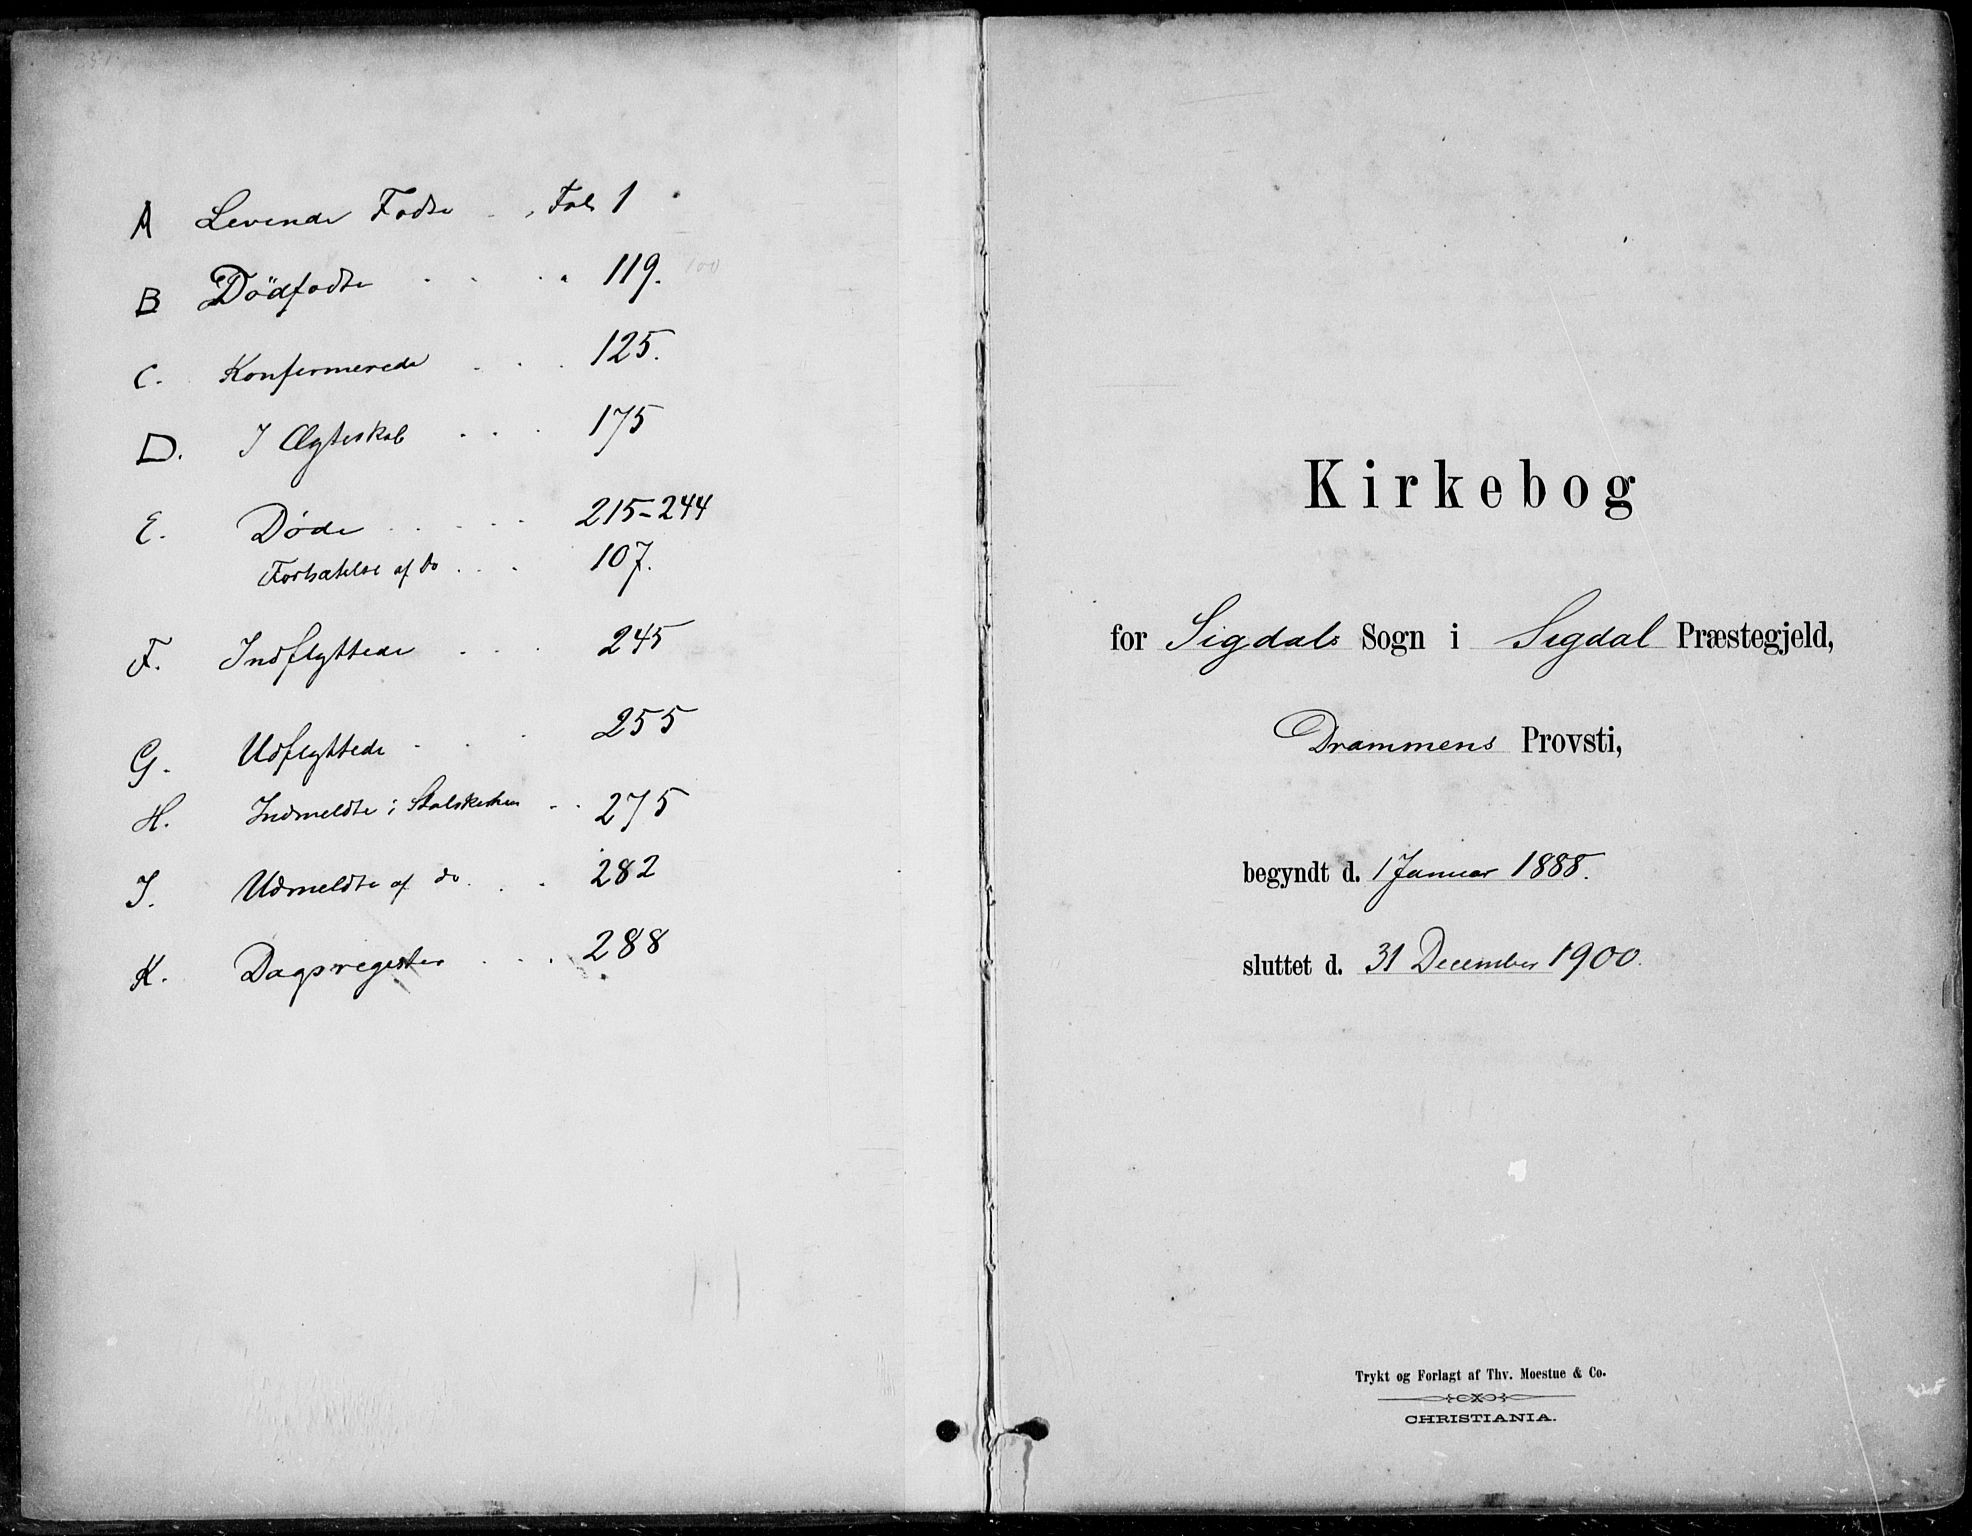 A Levende Fødte . . Fol. 1
B Dødfødte . . . . 119.
C. Konfirmerede . . . 125.
D. I Ægteskab . . . 175
E. Døde . . . . . 215-244
Fortsættelse af do . . . 107.
F. Indflyttede . . . 245
G. Udflyttede . . . 255
H. Indmeldte i Statskirken . . 275
I. Udmeldte af do. . . . 282
K. Dagsregister . . . 288
Kirkebog
for Sigdals Sogn i Sigdal Præstegjeld,
Drammens Provsti,
begyndt d. 1 Januar 1888.
sluttet d. 31 December 1900.
Trykt og Forlagt af Thv. Moestue & Co.
CHRISTIANIA.